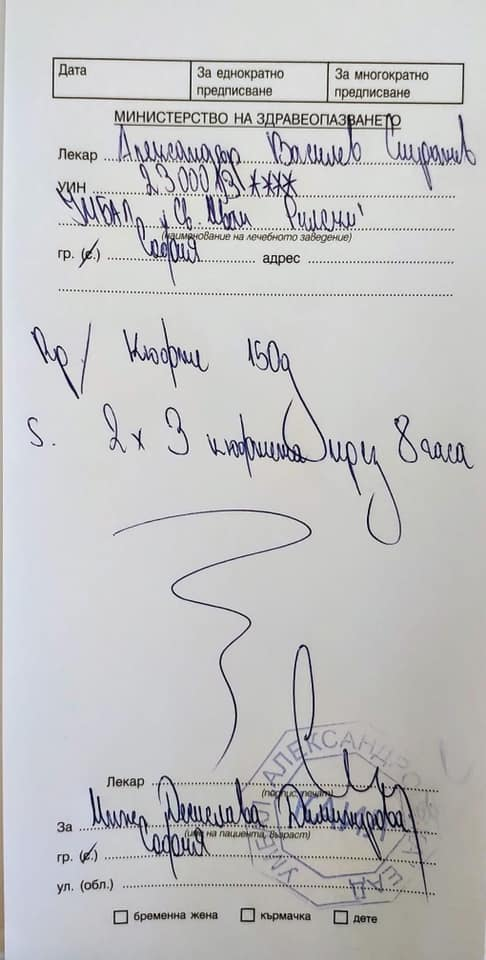 Дата За еднократно предписване За многократно предписване
МИНИСТЕРСТВО НА ЗДРАВЕОПАЗВАНЕТО
Лекар Александър Василев
УИН 23000131****
УМБАЛ "Св. Иван Рилски"
(наименование на лечебното заведение)
гр. (с.) София адрес
Rp/ Кюфте 150g
S. 2 x 3 кюфтета през 8 часа
Лекар
(подпис, печат)
За Десислава Димитрова
(име на пациента, възраст)
гр. (с.) София
ул. (обл.)
бременна жена кърмачка дете